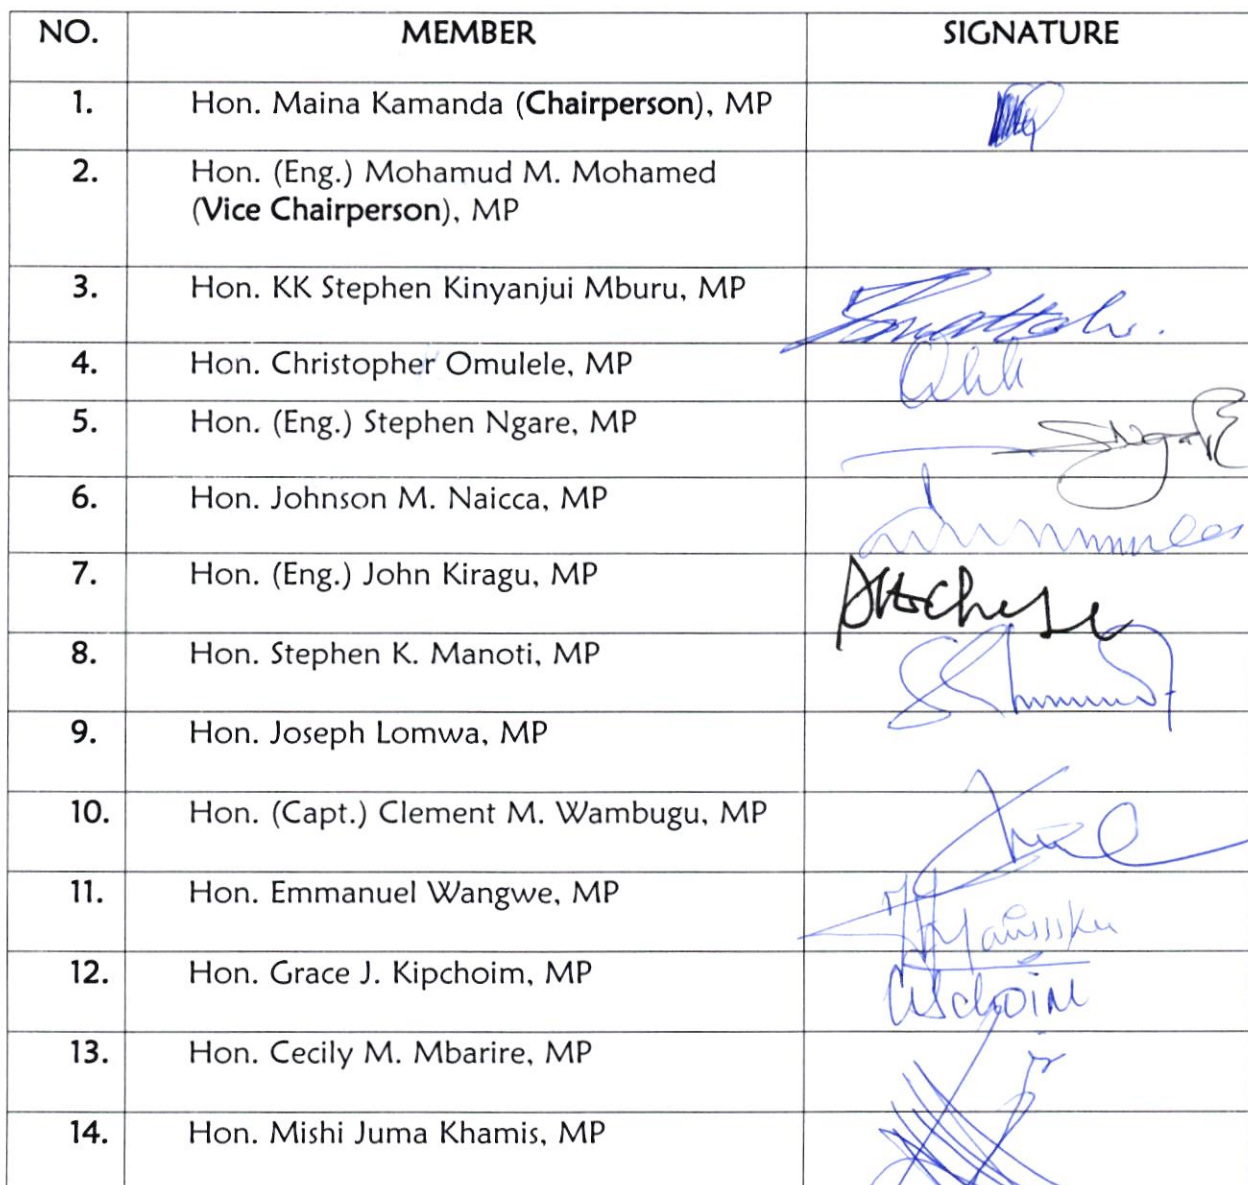 NO. MEMBER SIGNATURE
1. Hon. Maina Kamanda (Chairperson), MP
2. Hon. (Eng.) Mohamud M. Mohamed
(Vice Chairperson), MP
3. Hon. KK Stephen Kinyanjui Mburu, MP
4. Hon. Christopher Omulele, MP
5. Hon. (Eng.) Stephen Ngare, MP
6. Hon. Johnson M. Naicca, MP
7. Hon. (Eng.) John Kiragu, MP
8. Hon. Stephen K. Manoti, MP
9. Hon. Joseph Lomwa, MP
10. Hon. (Capt.) Clement M. Wambugu, MP
11. Hon. Emmanuel Wangwe, MP
12. Hon. Grace J. Kipchoim, MP
13. Hon. Cecily M. Mbarire, MP
14. Hon. Mishi Juma Khamis, MP